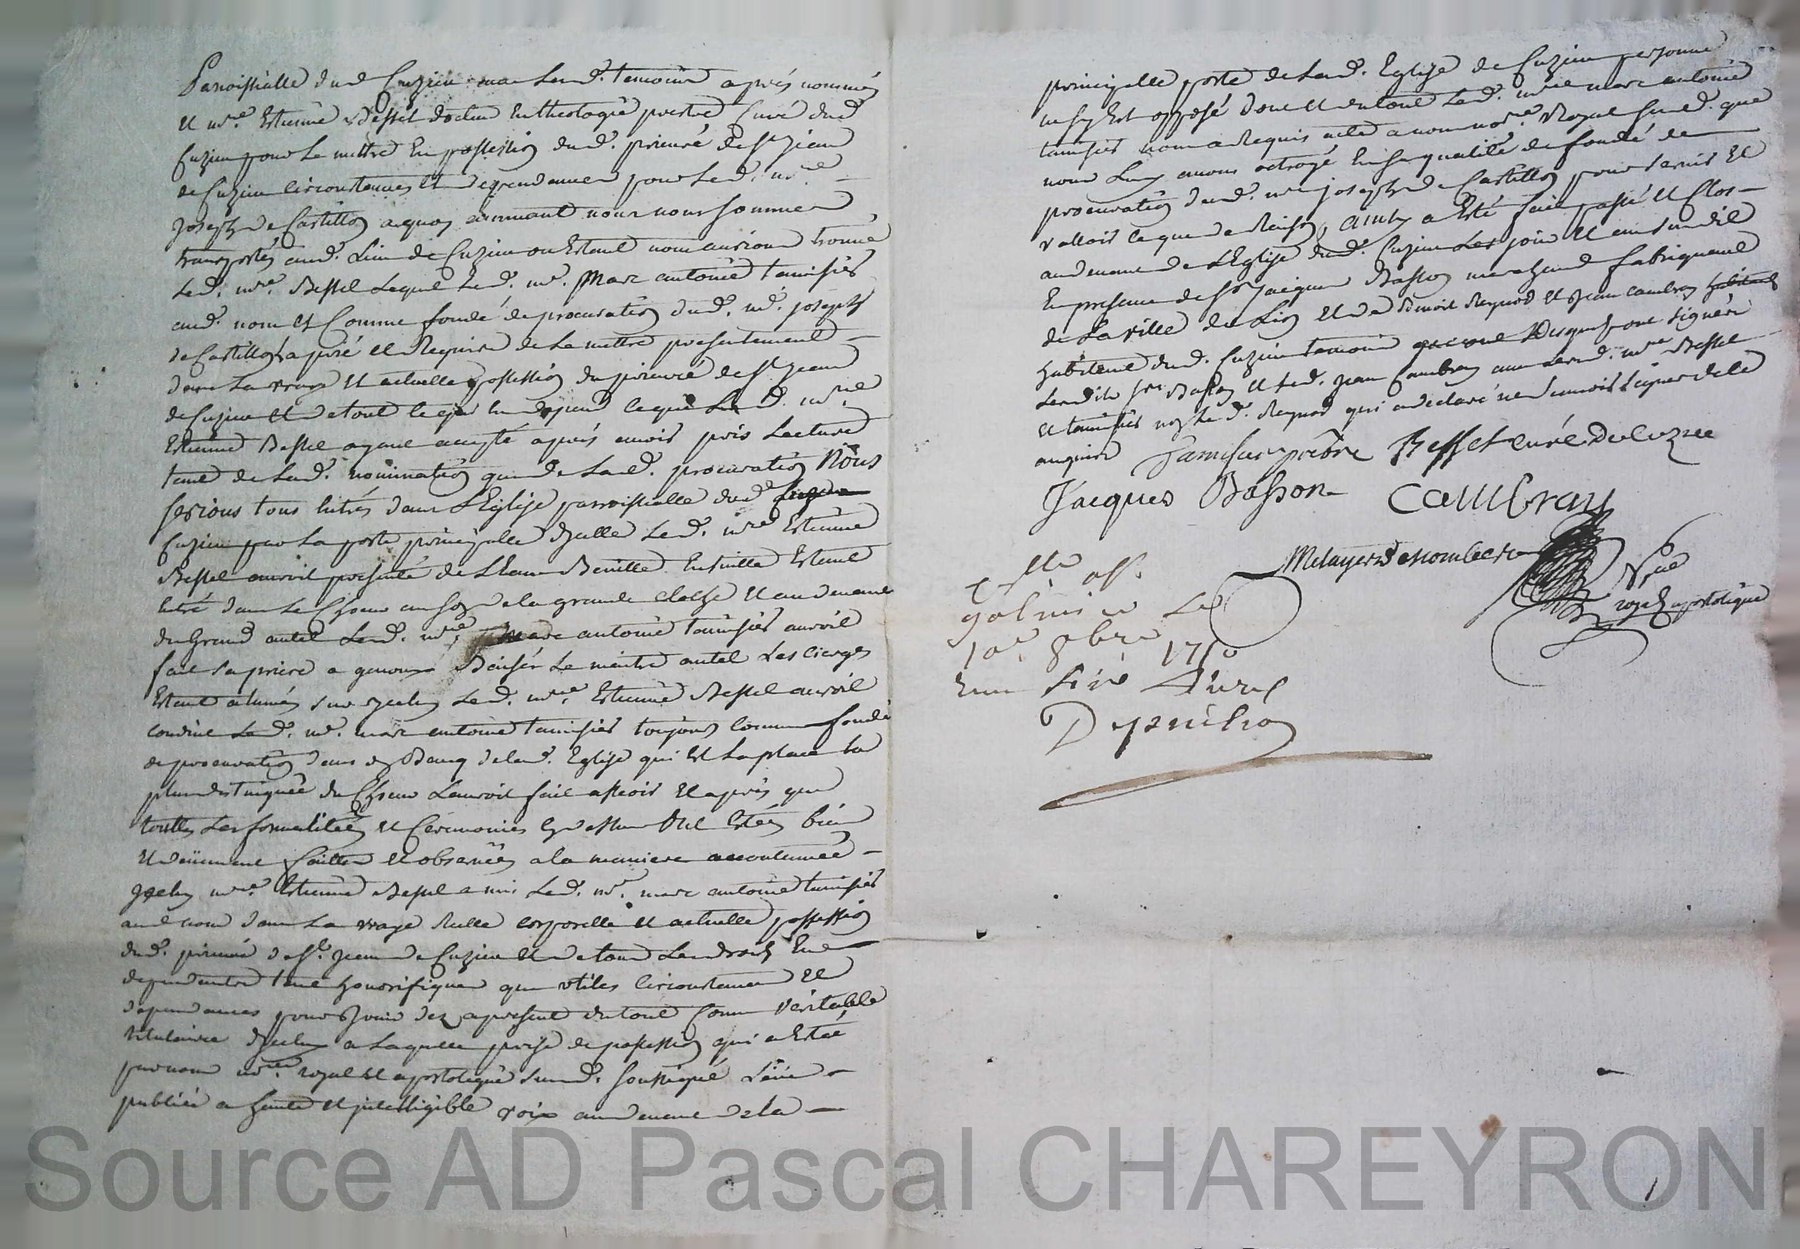 Paroissialle dud Cuzieu les d. temoins après nommés
et mre. Estienne Bessel docteur en theologie prestre Curé dud
Cuzieu pour le mettre en possession dud. prieuré de St jean
de Cuzieu circonstances et dependances pour led. mre
joseph de Castillon a quoy acceptant nous nous sommes
transportés aud. Lieu de Cuzieu ou Estant nous aurions trouvé
led. mre. Bessel lequel led. mr. Marc antoine tamisiés
aud. nom et comme fondé de procuration dud. mr. joseph
de Castillon a prié et Requis de le mettre presentement
dans la vraye et actuelle possession du prieuré de St jean
de Cuzieu et de tout ce qui en depend ce que led. mre
Estienne Bessel ayant accepté après avoir pris lecture
tant de lad. nomination que de lad. procuration Nous
serions tous entrés dans l'Eglise parroissialle dud
Cuzieu par la porte principalle d'jcelle led. mre Estienne
Bessel auroit presenté de l'Eau Benitte Ensuitte Estant
entré dans le Choeur au son de la grande cloche et au devant
du Grand autel led. mre. Marc antoine tamisiés auroit
fait sa priere a genoux Baiser le maitre autel les cierges
Estant alumés sur jceluy led. mre. Estienne Bessel auroit
conduit led. mr. marc antoine tamisiés toujours comme fondé
de procuration dans le Banq de lad. Eglise qui est la place la
plus distinguée du Choeur l'auroit fait assoir et après que
touttes les formalitées et Ceremonies cy dessus ont Estées bien
et deüement faittes et observées a la maniere accoutumée
jceluy mre. Estienne Bessel a mis led. mr. marc antoine tamisiés
aud nom dans la vraye reelle corporelle et actuelle possession
dud. prieuré de St. jean de Cuzieu et de tous les droits En
dependants tant honorifiques que utiles circonstances et
dependances pour jouir dez a present du tout comme veritable
titulaire d'jceluy a laquelle prise de possession qui a Esté
par nous nore. royal et apostolique sousd. soussigné
publiée a haute et jntelligible voix au devant de la
principalle porte de lad. Eglise de Cuzieu personne
ne s'y est opposé dont et du tout led. mre marc antoine
tamisiés nous a Requis acte a nous nore. Royal susd. que
nous luy avons octroyé En sa qualité de fondé de
procuration dud. mre joseph de Castillon pour servir et
valloir ce que de Raison, ainsy a Esté fait passé et Clos
au devant de l'Eglise dud. Cuzieu les jour et an susdit
En presence de Sr jacques Basson marchand fabriquant
de la ville de Lion et de Benoit Reynod et jean cambray habitants
habitant dud. Cuzieu temoins requis Desquels ont signéés
lesdits sr. Basson et led. jean Cambray avec lesd. mre Bessel
et tamisiés non led. Reynod qui a declaré ne sçavoir signer de ce
enquis Tamisier prêtre Bessel curé de cuzieu
Jacques Basson Cambray
Metayer Nre
royal apostolique
Clle a St.
galmier Le
10e 8bre 1750
Depruchon